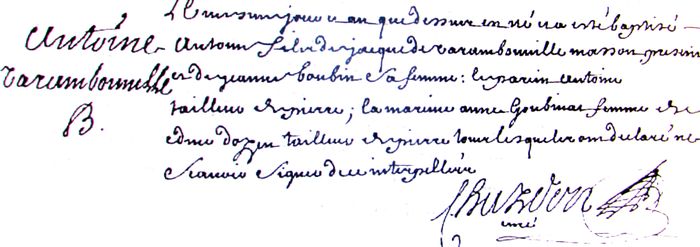 Antoine
Tarambouville
B.
Le mesme jour et an que dessus en né et a esté baptisé
Antoine fils de jacque de Tarambouville masson present
et de jeanne boubin sa femme: le parein antoine
tailleur de pierre; la mareine anne Goubinat femme de
edme dozen tailleur de pierre tous lesquels ont declaré ne
scavoir signer de ce interpellés
curé